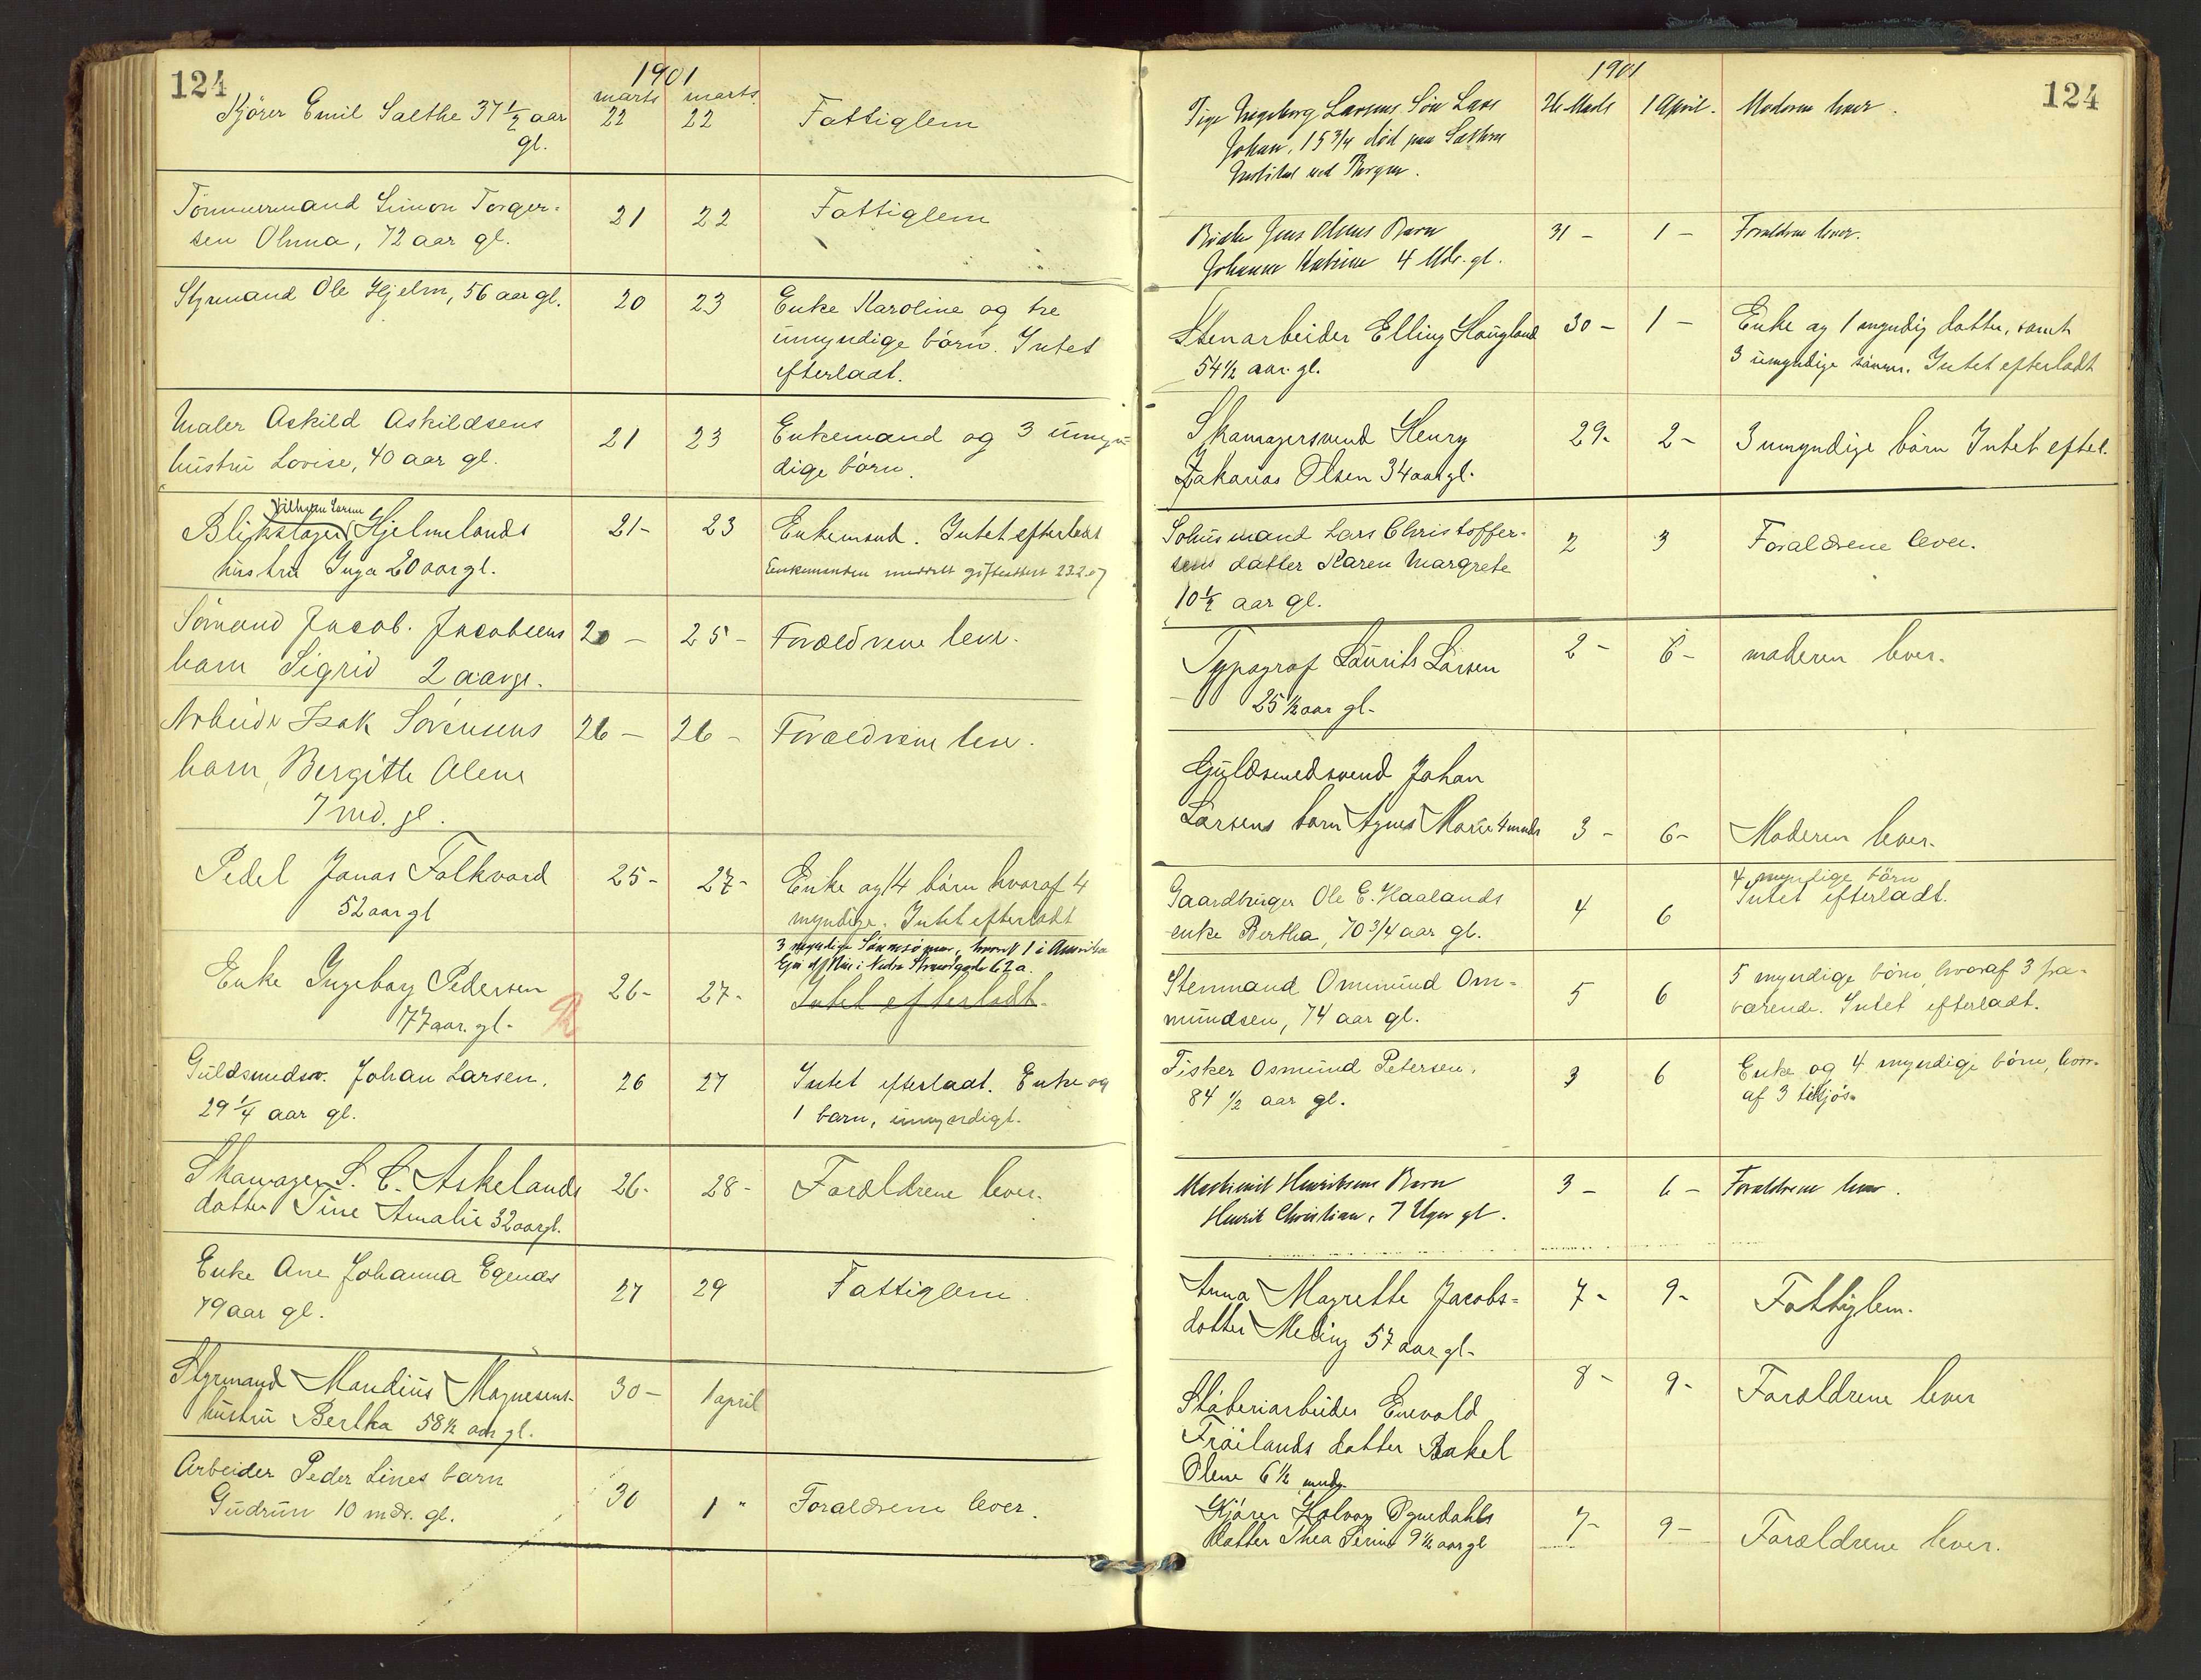 124
1901
marts marts
Kjörer Emil Salthe 37 1/2 aar 22 22 Fattiglem
gl.
Tömmermand Simon Torger-
sen Ohma, 72 aar gl. 21 22 Fattiglem
Styrmand Ole Hjelm, 56 aar gl. 20 23 Enke Karoline og tre
umyndige börn. Intet
efterladt.
Maler Askild Askildsens 21 23 Enkemand og 3 umyn-
hustru Lovise, 40 aar gl. dige börn.
Vilhelm
Blikslager Hjelmelands 21- 23 Enkemand. Intet efterladt
hustru Inga 20 aar gl. Enkemanden meddelt gifteattest 23.2.07
Sömand Jacob Jacobsens 20 - 25 - Forældrene lever.
barn Sigrid 2 aargl.
Arbeider Isak Sörensens 26 - 26 - Forældrene lever.
barn, Bergitte Olene
7 md. gl.
Pedel Jonas Folkvord 25- 27- Enke og 14 börn hvoraf 4
52 aar gl myndige. Intet efterladt
3 myndige Sönnesönner, hvoraf 1 i Amerika
Enke Ingeborg Pedersen 26- 27- Intet efterladt.
77 aar. gl.
Guldsmedsv. Johan Larsen, 26 27 Intet efterladt. Enke og
29 1/4 aar gl. 1 barn, umyndigt.
Skomager S. C. Askelands 26- 28- Forældrene lever.
datter Tine Amalie 32 aar gl.
Enke Ane Johanna Egenæs 27 29 Fattiglem.
79 aar gl.
Styrmand Mandius Magnesens 30- 1 april
hustru Bertha 58 1/2 aar gl.
Arbeider Peder Lines barn 30 1 " Forældrene lever.
Gudrun 10 mdr. gl.
124
1901
Pige Ingeborg Larsens Sön Lars 26 Marts 1 April. Moderen lever.
Johan, 15 3/4 död paa
Institut ved Bergen.
Bödker Jens Olsens Barn 31 - 1 - Forældrene lever.
Johanne Katrine 4 Mdr. gl.
Stenarbeider Elling Haugland 30 - 1 - Enke og 1 myndig datter, samt
54 1/2 aar. gl. 3 umyndige sönner. Intet efterladt
Skomagersvend Henry 29- 2- 3 umyndige börn Intet efterl.
Zakarias Olsen 34 aar gl.
Sohusmand Lars Christoffer-
sens datter Karen Margrete 2 3 Forældrene lever.
10 1/2 aar gl.
Typograf Laurits Larsen 2 - 6 - moderen lever.
25 1/2 aar gl.
Guldsmedsvend Johan
Larsens barn Agnes Marie 4 mndr 3 - 6- Moderen lever.
Gaardbruger Ole E. Haalands 4 6 4 myndige börn
enke Bertha, 70 3/4 aar gl. Intet efterladt.
Stenmand Ommund Om- 5 6 5 myndige börn, hvoraf 3 fra-
mundsen, 74 aar gl. værende. Intet efterladt.
Fisker Osmund Petersen, 3 6 Enke og 4 myndige börn, hvor-
84 1/2 aar gl. af 3 tilsjös.
Maskinist Henriksens Barn 3 - 6 - Forældrene lever.
Henrik Christian, 7 Uger gl.
Anna Magrethe Jacobs- 7 - 9 - Fattiglem.
datter Meling 57 aar gl.
Stöberiarbeider Enevold 8 - 9 - Forældrene lever
Fröilands datter Rakel
Olene 6 1/2 mndr
Kjörer Halvor Ognedahls 7- 9- Forældrene lever.
datter Thea Serine 9 1/2 aar gl